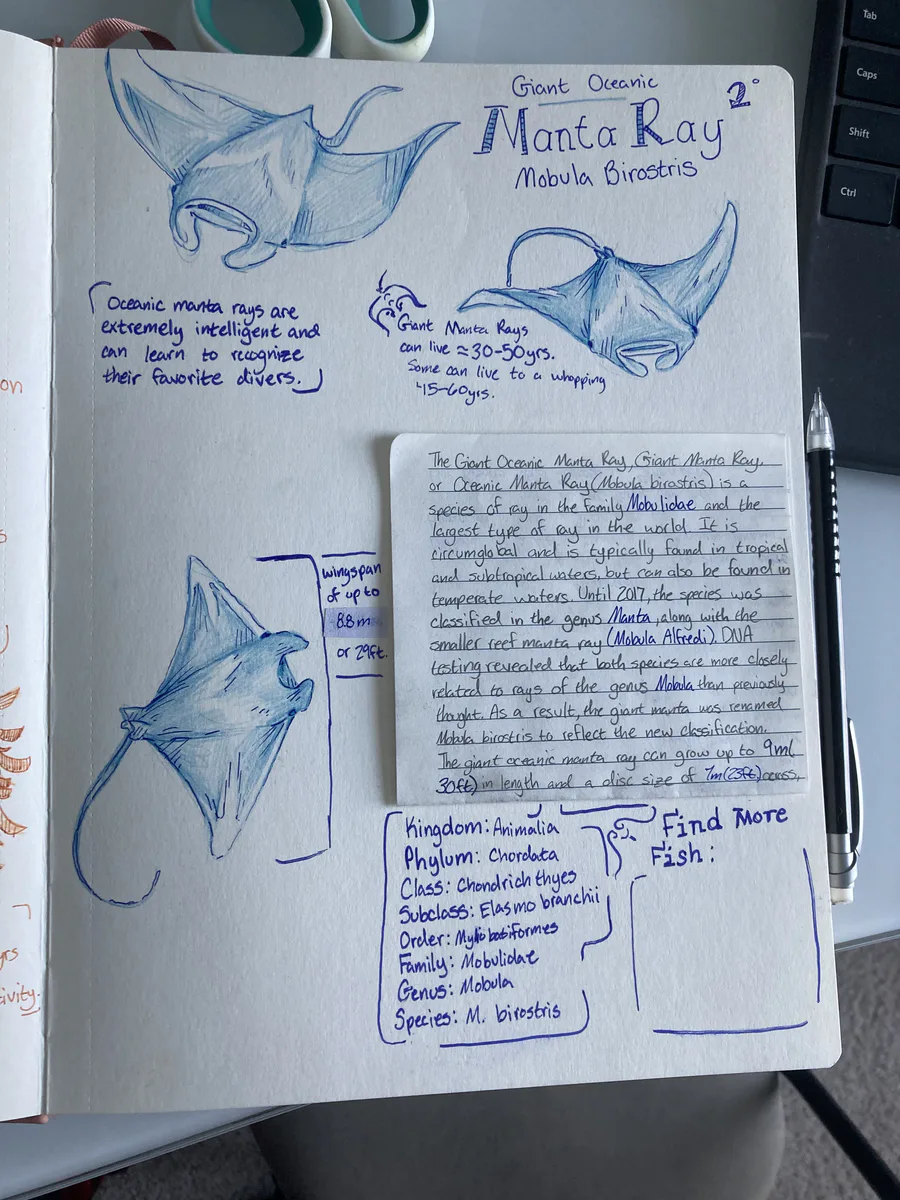 Giant Oceanic
2°
Manta Ray
Mobula Birostris
Oceanic manta rays are
extremely intelligent and
can learn to recognize
their favorite divers.
Giant Manta Rays
can live ≈30-50yrs.
Some can live to a whopping
45-60yrs.
wingspan
of up to
8.8 m
or 29ft.
The Giant Oceanic Manta Ray, Giant Manta Ray,
or Oceanic Manta Ray (Mobula birostris) is a
species of ray in the family Mobulidae and the
largest type of ray in the world. It is
circumglobal and is typically found in tropical
and subtropical waters, but can also be found in
temperate waters. Until 2017, the species was
classified in the genus Manta, along with the
smaller reef manta ray (Mobula Alfredi). DNA
testing revealed that both species are more closely
related to rays of the genus Mobula than previously
thought. As a result, the giant manta was renamed
Mobula birostris to reflect the new classification.
The giant oceanic manta ray can grow up to 9m(
30ft) in length and a disc size of 7m(23ft) across,
Kingdom: Animalia
Phylum: Chordata
Class: Chondrichthyes
Subclass: Elasmobranchii
Order: Myliobatiformes
Family: Mobulidae
Genus: Mobula
Species: M. birostris
Find More
Fish:
on
yrs
tivity.
Tab
Caps
Shift
Ctrl